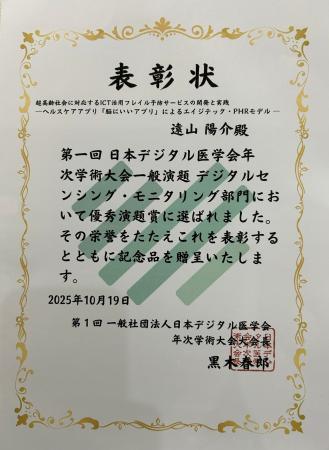 表彰状
超高齢社会に対応するICT活用フレイル予防サービスの開発と実践
―ヘルスケアアプリ「脳にいいアプリ」によるエイジテック・PHRモデル―
遠山 陽介殿
第一回 日本デジタル医学会年
次学術大会一般演題 デジタルセ
ンシング・モニタリング部門にお
いて優秀演題賞に選ばれました。
その栄誉をたたえこれを表彰する
とともに記念品を贈呈いたしま
す。
2025年10月19日
第1回 一般社団法人日本デジタル医学会
年次学術大会大会長
黒木春郎